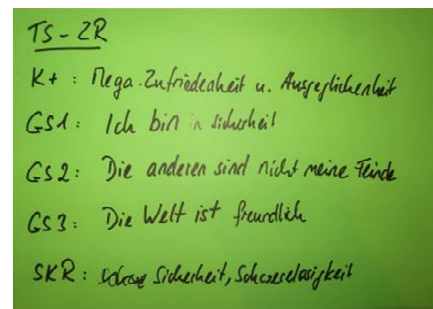 TS-ZR
K+: Mega-Zufriedenheit u. Ausgeglichenheit
GS1: Ich bin in Sicherheit
GS2: Die anderen sind nicht meine Feinde
GS3: Die Welt ist freundlich
SKR: Sicherheit,